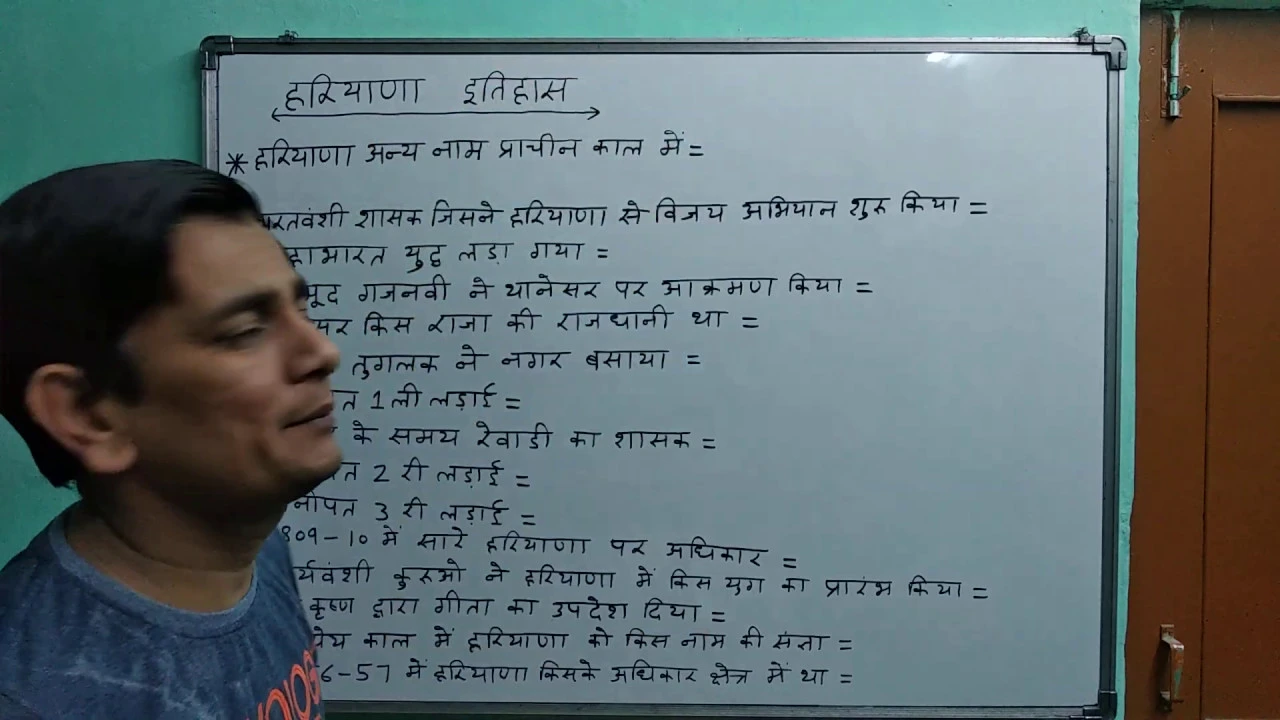 हरियाणा इतिहास
* हरियाणा अन्य नाम प्राचीन काल में =
शासक जिसने हरियाणा से विजय अभियान शुरू किया =
युद्ध लड़ा गया =
गजनवी ने थानेसर पर आक्रमण किया =
किस राजा की राजधानी था =
तुगलक ने नगर बसाया =
1 ली लड़ाई =
के समय रेवाडी का शासक =
2 री लड़ाई =
3 री लड़ाई =
809-10 में सारे हरियाणा पर अधिकार =
कुरूओ ने हरियाणा में किस युग का प्रारंभ किया =
कृष्ण द्वारा गीता का उपदेश दिया =
काल में हरियाणा को किस नाम की संज्ञा =
6-57 में हरियाणा किसके अधिकार क्षेत्र में था =